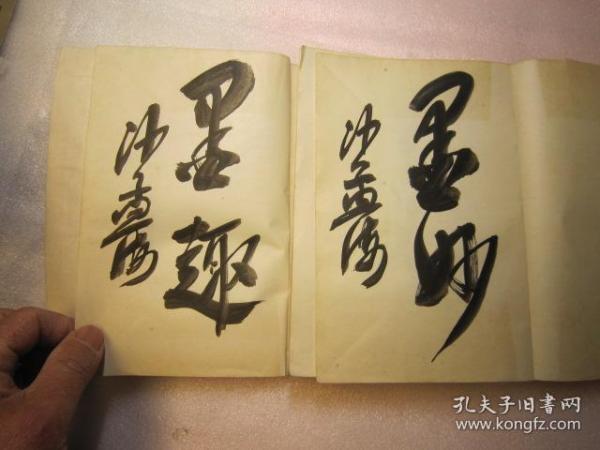 墨趣
沙孟海
墨妙
沙孟海
孔夫子旧书网
www.kongfz.com